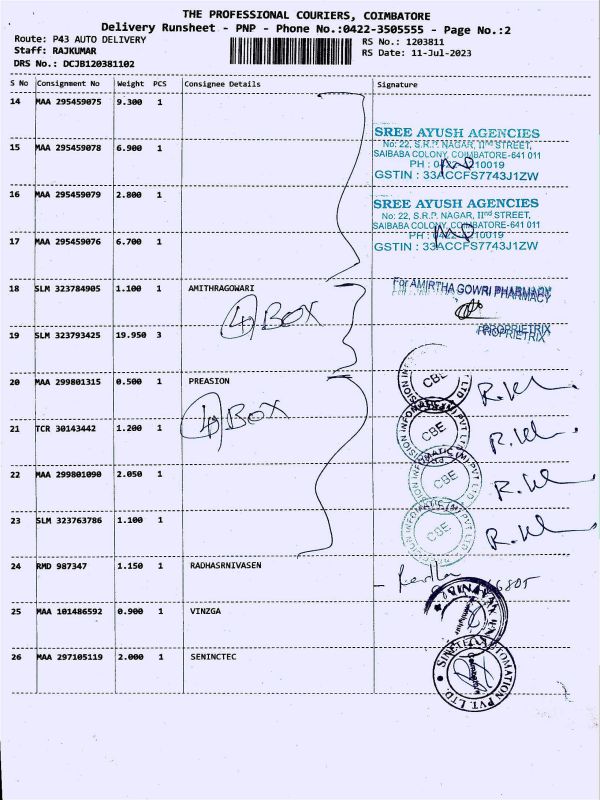 THE PROFESSIONAL COURIERS, COIMBATORE
Delivery Runsheet - PNP - Phone No.:0422-3505555 - Page No.:2
Route: P43 AUTO DELIVERY
Staff: RAJKUMAR
DRS No.: DCJB120381102
RS No.: 1203811
RS Date: 11-Jul-2023
S No Consignment No Weight PCS Consignee Details Signature
14 MAA 295459075 9.300 1
SREE AYUSH AGENCIES
No: 22, S.R.P. NAGAR, IInd STREET,
15 MAA 295459078 6.900 1
SAIBABA COLONY, COIMBATORE-641 011
GSTIN : 33ACCFS7743J1ZW
16 MAA 295459079 2.800 1
SREE AYUSH AGENCIES
No: 22, S.R.P. NAGAR, IInd STREET,
SAIBABA COLONY, COIMBATORE-641 011
17 MAA 295459076 6.700 1
GSTIN : 33ACCFS7743J1ZW
18 SLM 323784905 1.100 1 AMITHRAGOWARI
For AMIRTHA GOWRI PHARMACY
4 BOX
19 SLM 323793425 19.950 3
PROPRIETRIX
20 MAA 299801315 0.500 1 PREASION
CBE
4 BOX
21 TCR 30143442 1.200 1
CBE
22 MAA 299801090 2.050 1
CBE
23 SLM 323763786 1.100 1
CBE
24 RMD 987347 1.150 1 RADHASRNIVASEN
25 MAA 101486592 0.900 1 VINZGA
26 MAA 297105119 2.000 1 SENINCTEC